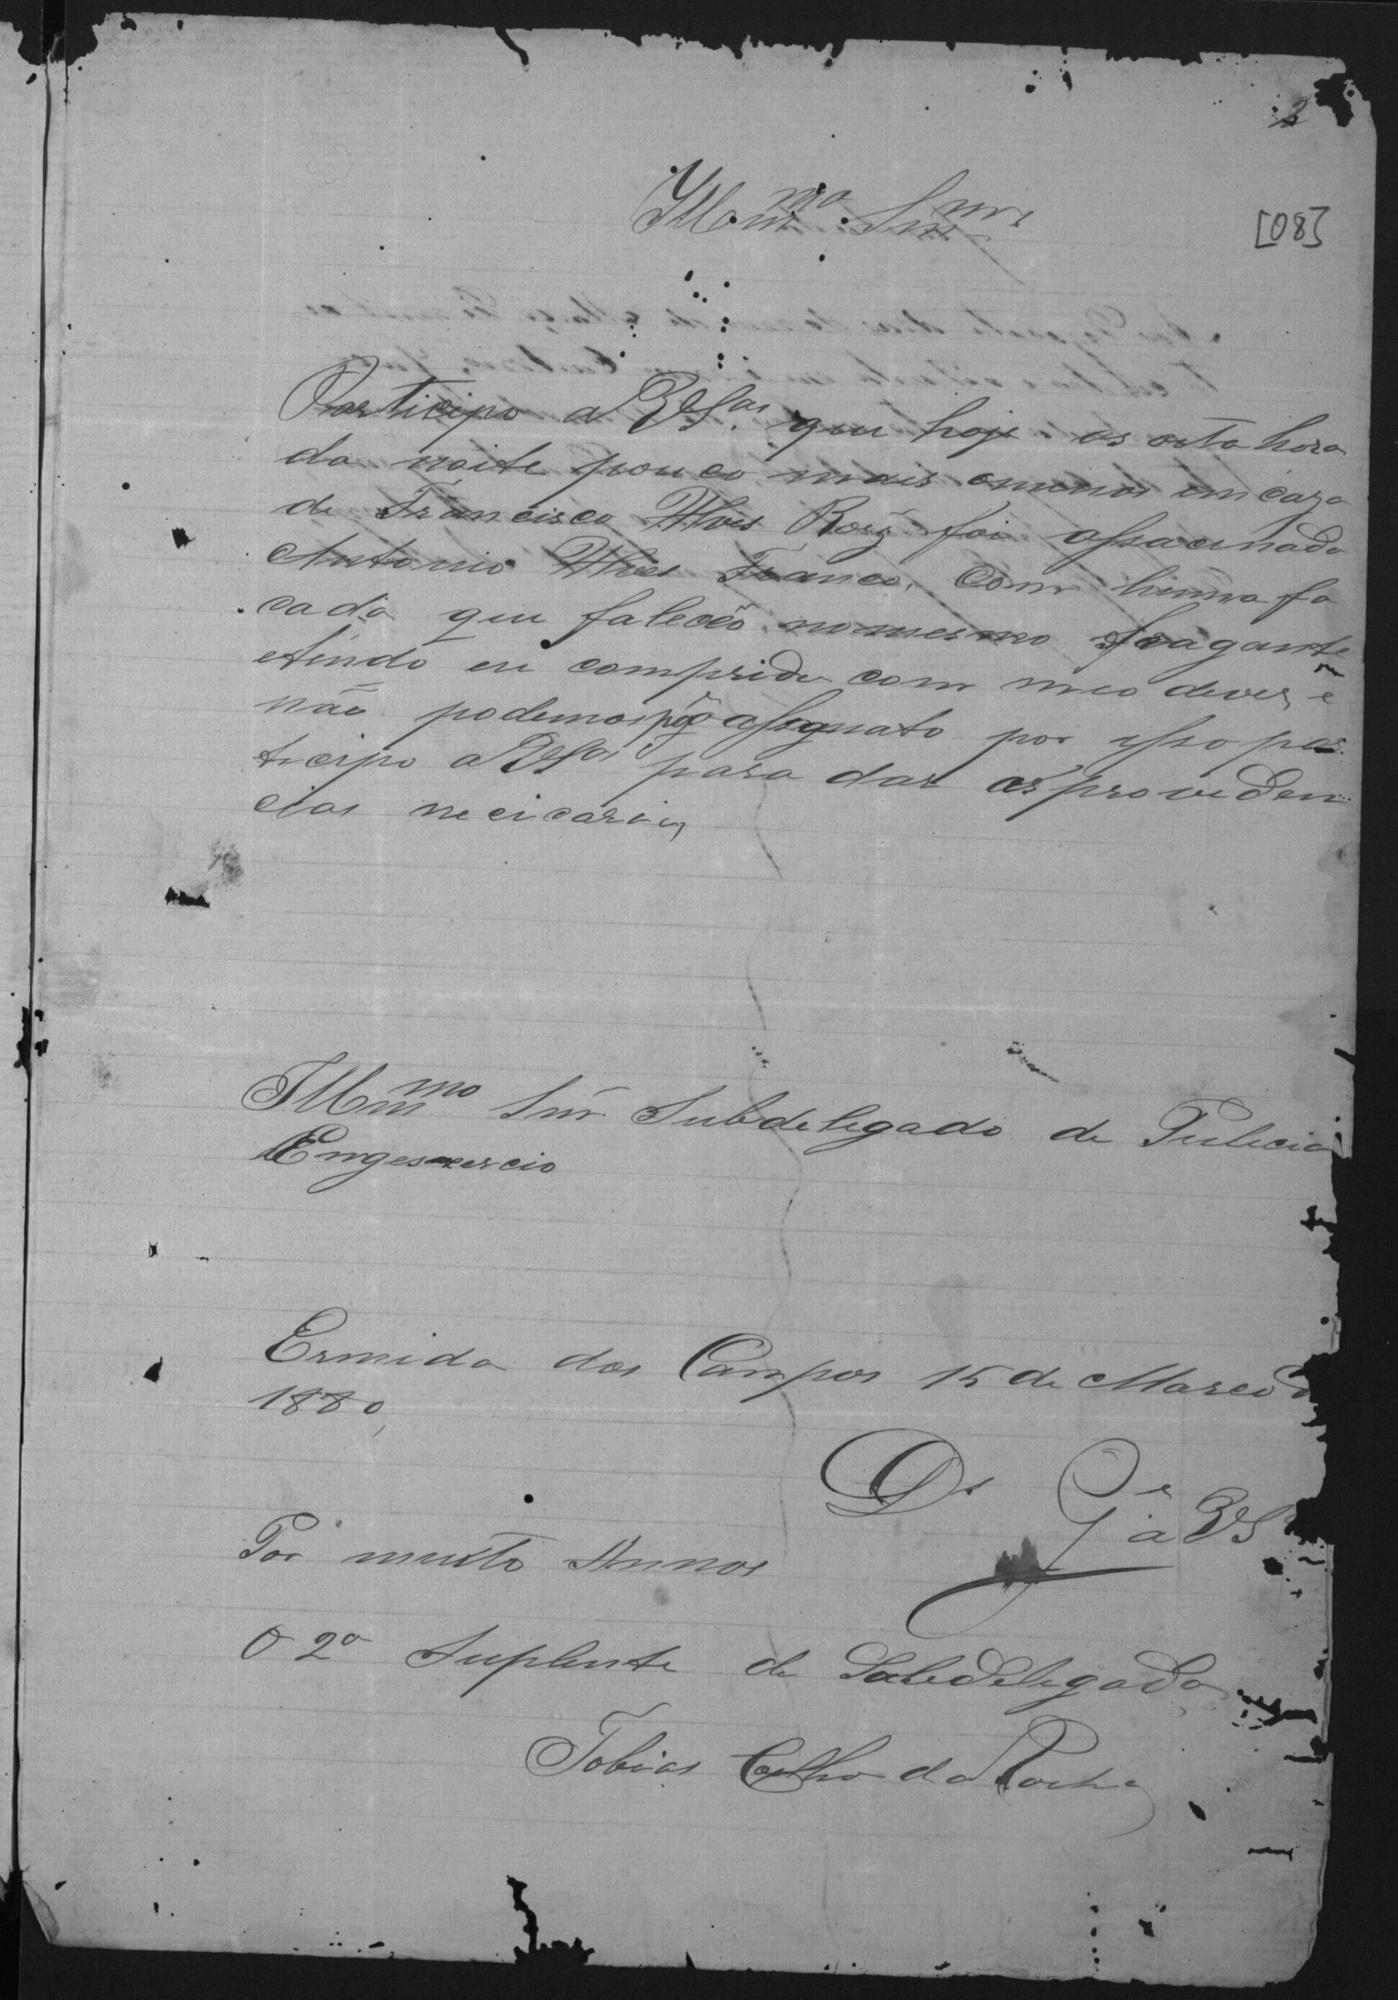 2
[08]
Illmo Snr
Participo a VSas que hoje as oito hora
da noite pouco mais omenos em caza
de Francisco Alves Roiz foi assacinado
Antonio Alves Franco, Com huma fa
cada que faleceo no mesmo fragante
etindo eu comprido com meo dever e
não podemos assignato por isso par
ticipo a VSas para dar as providen
cias necicarias
Illmo Snr Subdelegado de Pulicia
Engesercio
Ermida dos Campos 15 de Marco d
1880,
Ds Ge a VS
Por muito Annos
O 2o Suplente de Subdelegado
Tobias Coelho da Rocha